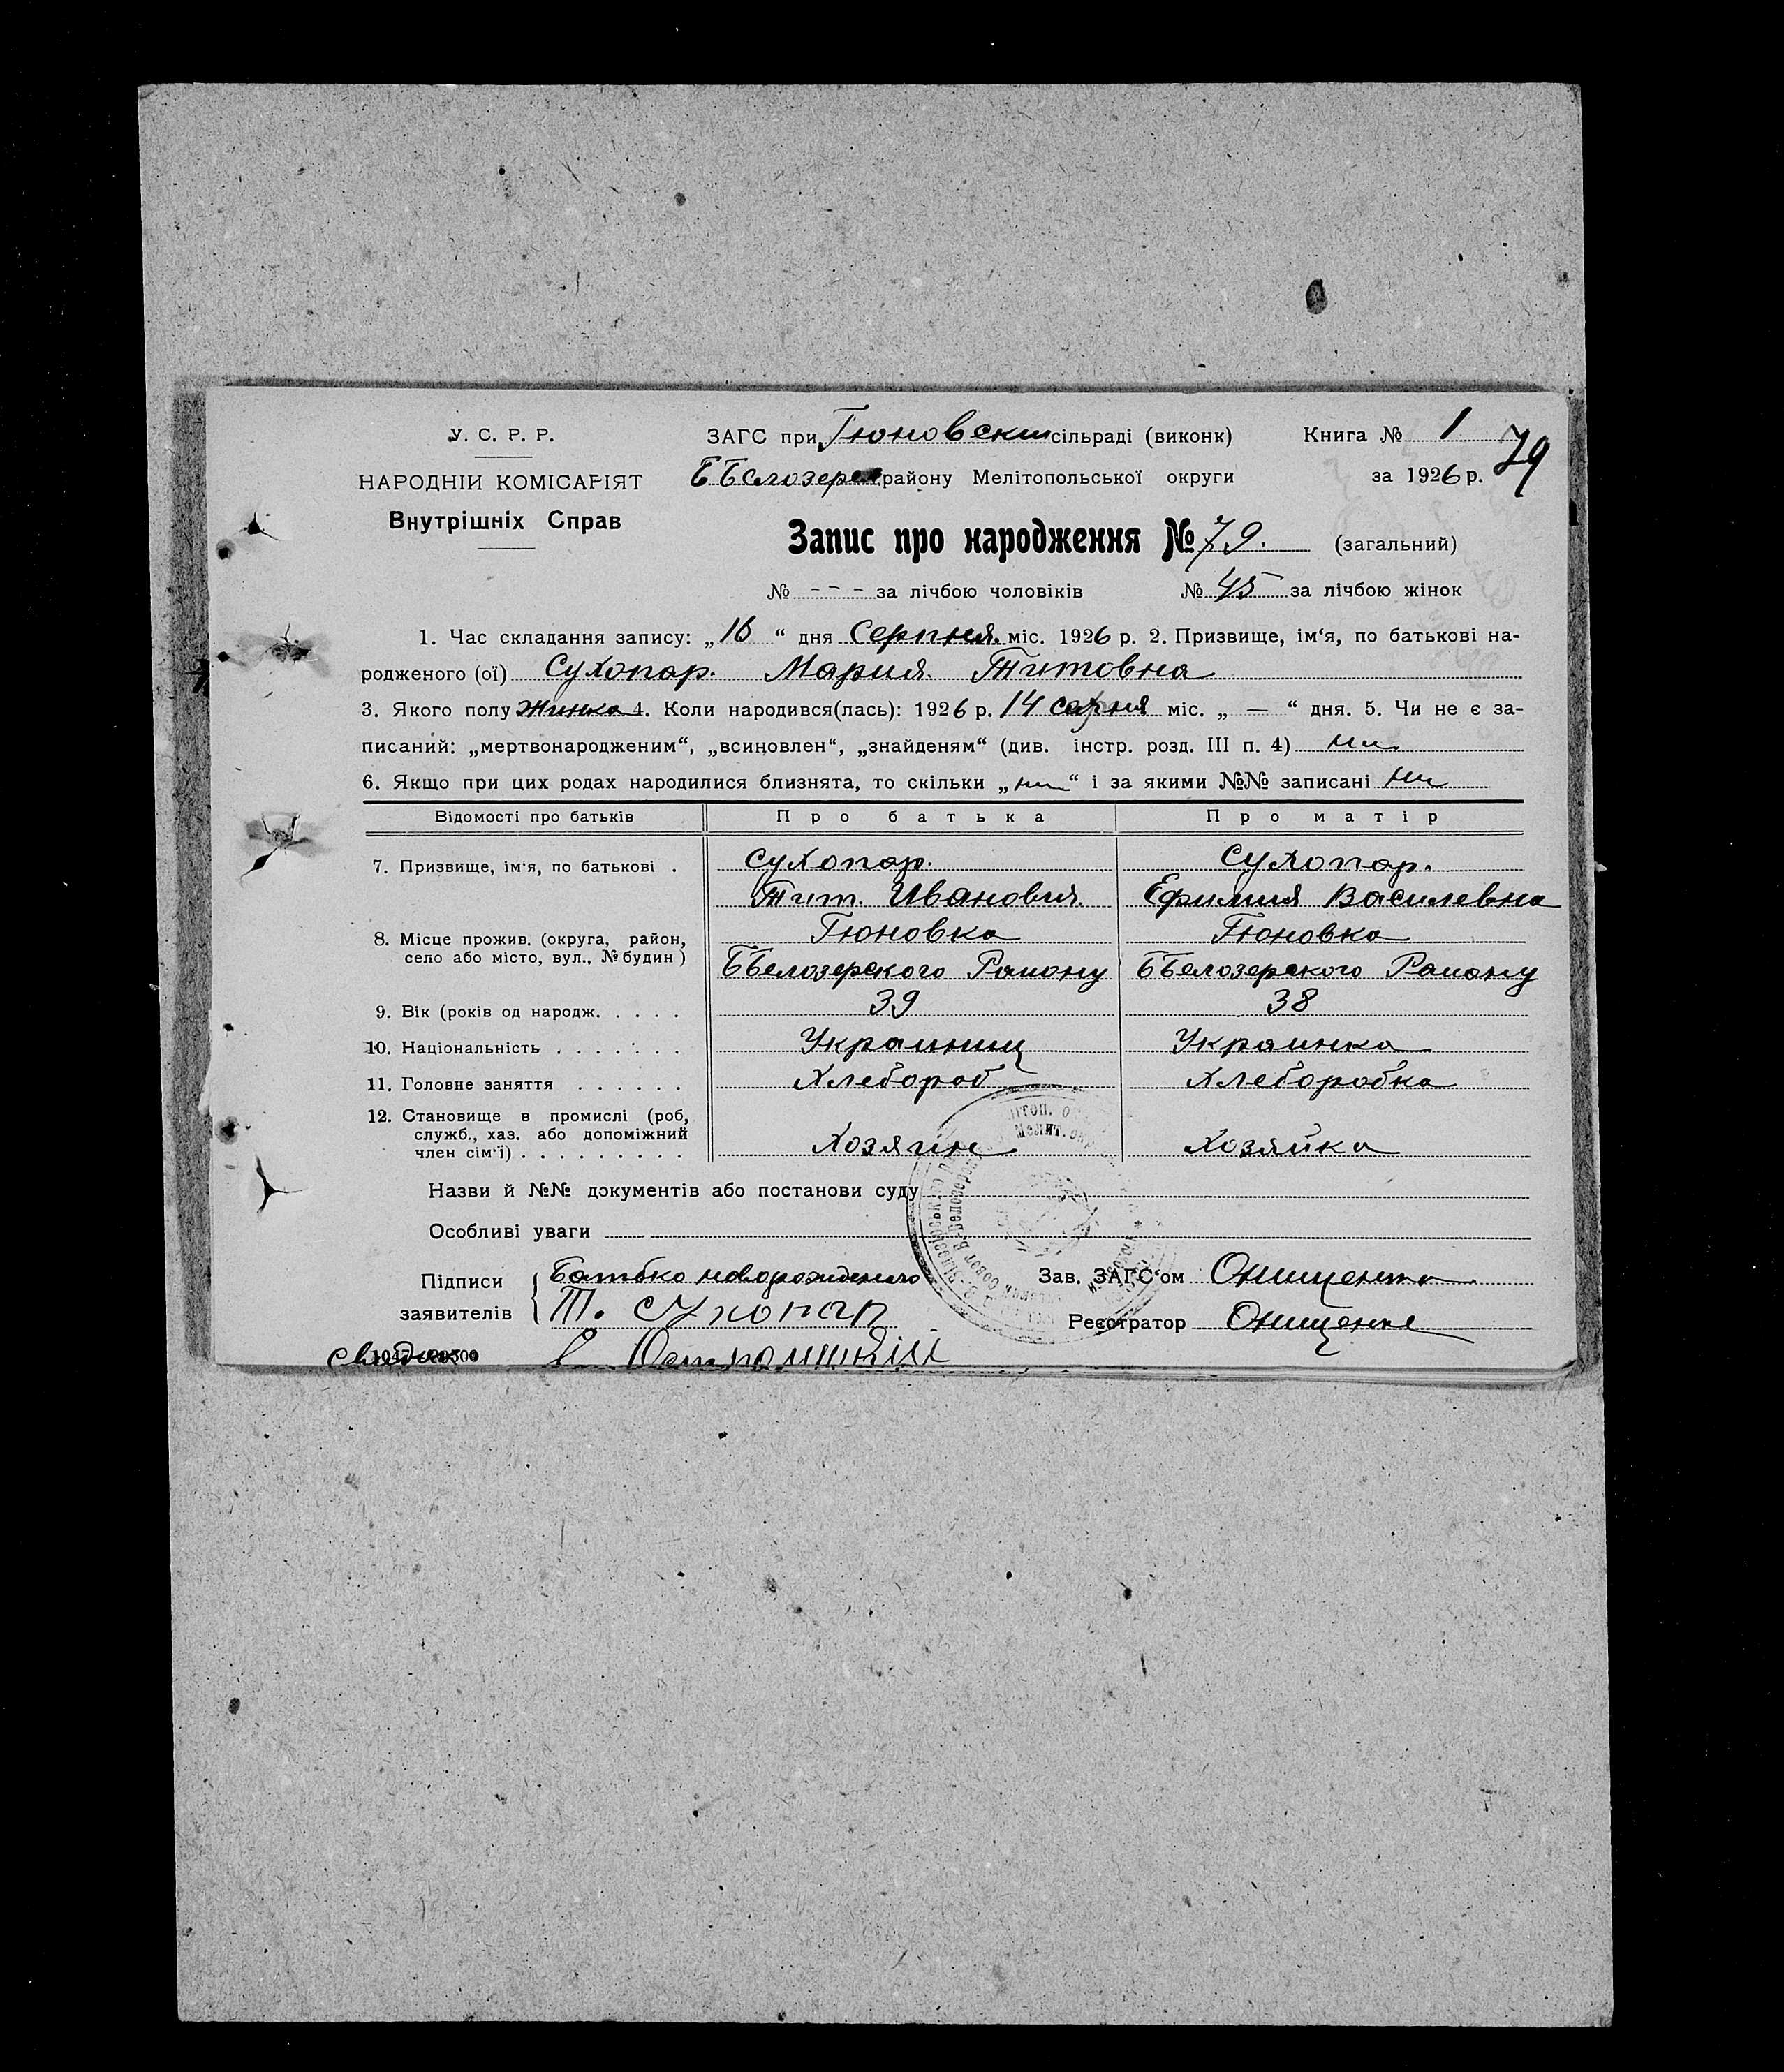 У. С. Р. Р.
НАРОДНІЙ КОМІСАРІЯТ
Внутрішніх Справ
ЗАГС при Гюновскш сільраді (виконк)
ББелозерск району Мелітопольської округи
Книга № 1
79
за 1926 р.
Запис про народження № 79. (загальний)
№ - - - за лічбою чоловіків № 45 за лічбою жінок
1. Час складання запису: „16 “ дня Серпня. міс. 1926 р. 2. Призвище, ім‘я, по батькові на-
родженого (ої) Сухопар. Мария. Титовна
3. Якого полу Жинка 4. Коли народився(лась): 1926 р. 14 серпня міс. „ — “ дня. 5. Чи не є за-
писаний: „мертвонародженим“, „всиновлен“, „знайденям“ (див. інстр. розд. III п. 4) ни
6. Якщо при цих родах народилися близнята, то скільки „ни“ і за якими №№ записані ни
Відомості про батьків Про батька Про матір
7. Призвище, ім‘я, по батькові . Сухопар. Сухопар.
Тит. Иванович. Ефимия Василевна
8. Місце прожив. (округа, район, Гюновка Гюновка
село або місто, вул., № будин) ББелозерского Району ББелозерского Району
9. Вік (років од народж. . . . . 39 38
10. Національність . . . . . . . Украинец Украинка
11. Головне заняття . . . . . . Хлебороб Хлеборобка
12. Становище в промислі (роб,
служб., хаз. або допоміжний
член сім‘ї) . . . . . . . . . Хозяин Хозяйка
Назви й №№ документів або постанови суду
Особливі уваги
Підписи Батько новорожденого
заявителів Т. Сухопар
Зав. ЗАГС‘ом Онищенко
Реєстратор Онищенко